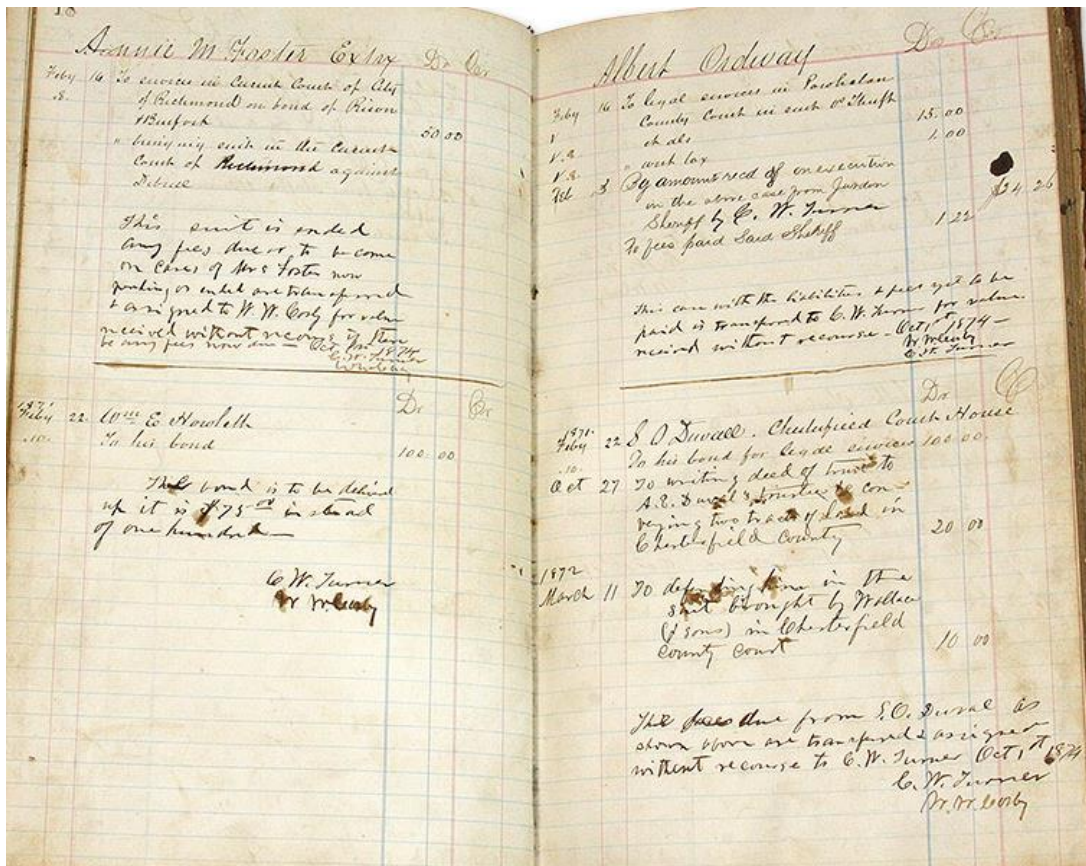 18
Annie M Foster Extrx Dr Cr
Feby 16 To services in Circuit Court of City
of Richmond on bond of Rison
& Burfoot 50 00
" bringing suit in the Circuit
Court of Richmond against
This suit is ended
any fees due or to be come
on Cases of Mrs Foster now
pending or ended are transferred
& assigned to W. W. Cosby for value
received without recourse if there
be any fees now due — Oct 1st 1874
C. W. Turner
W W Cosby
1871
Feby 22. Wm E Howlett Dr Cr
.10. To his bond 100.00
This bond is to be delivered
up it is $75 00 instead
of one hundred —
C W. Turner
W W Cosby
Albert Ordway Dr Cr
Feby 16 To legal services in Powhatan
County Court in suit vs
et als 15.00
" writ tax 1.00
Feb 8 By amount recd of on execution
in the above case from Jordon
Sheriff by C. W. Turner $24 26
To fees paid Said Sheriff 1 22
This case with the liabilities & fees yet to be
paid is transferred to C. W. Turner for value
received without recourse — Oct 1st 1874 —
W W Cosby
C. W. Turner
1871. Dr Cr
Feby 22 S O Duvall. Chesterfield Court House
.10. To his bond for legal services 100.00
Oct 27 To writing deed of trust to
A. E. Duval's trustee & con-
veying two tracts of land in
Chesterfield County 20 00
1872
March 11 To defending him in the
suit brought by Wallace
(& sons) in Chesterfield
county court 10 00
The fees due from S. O. Duval as
shown above are transferred & assigned
without recourse to C. W. Turner Oct 1st 1874
C. W. Turner
W. W. Cosby